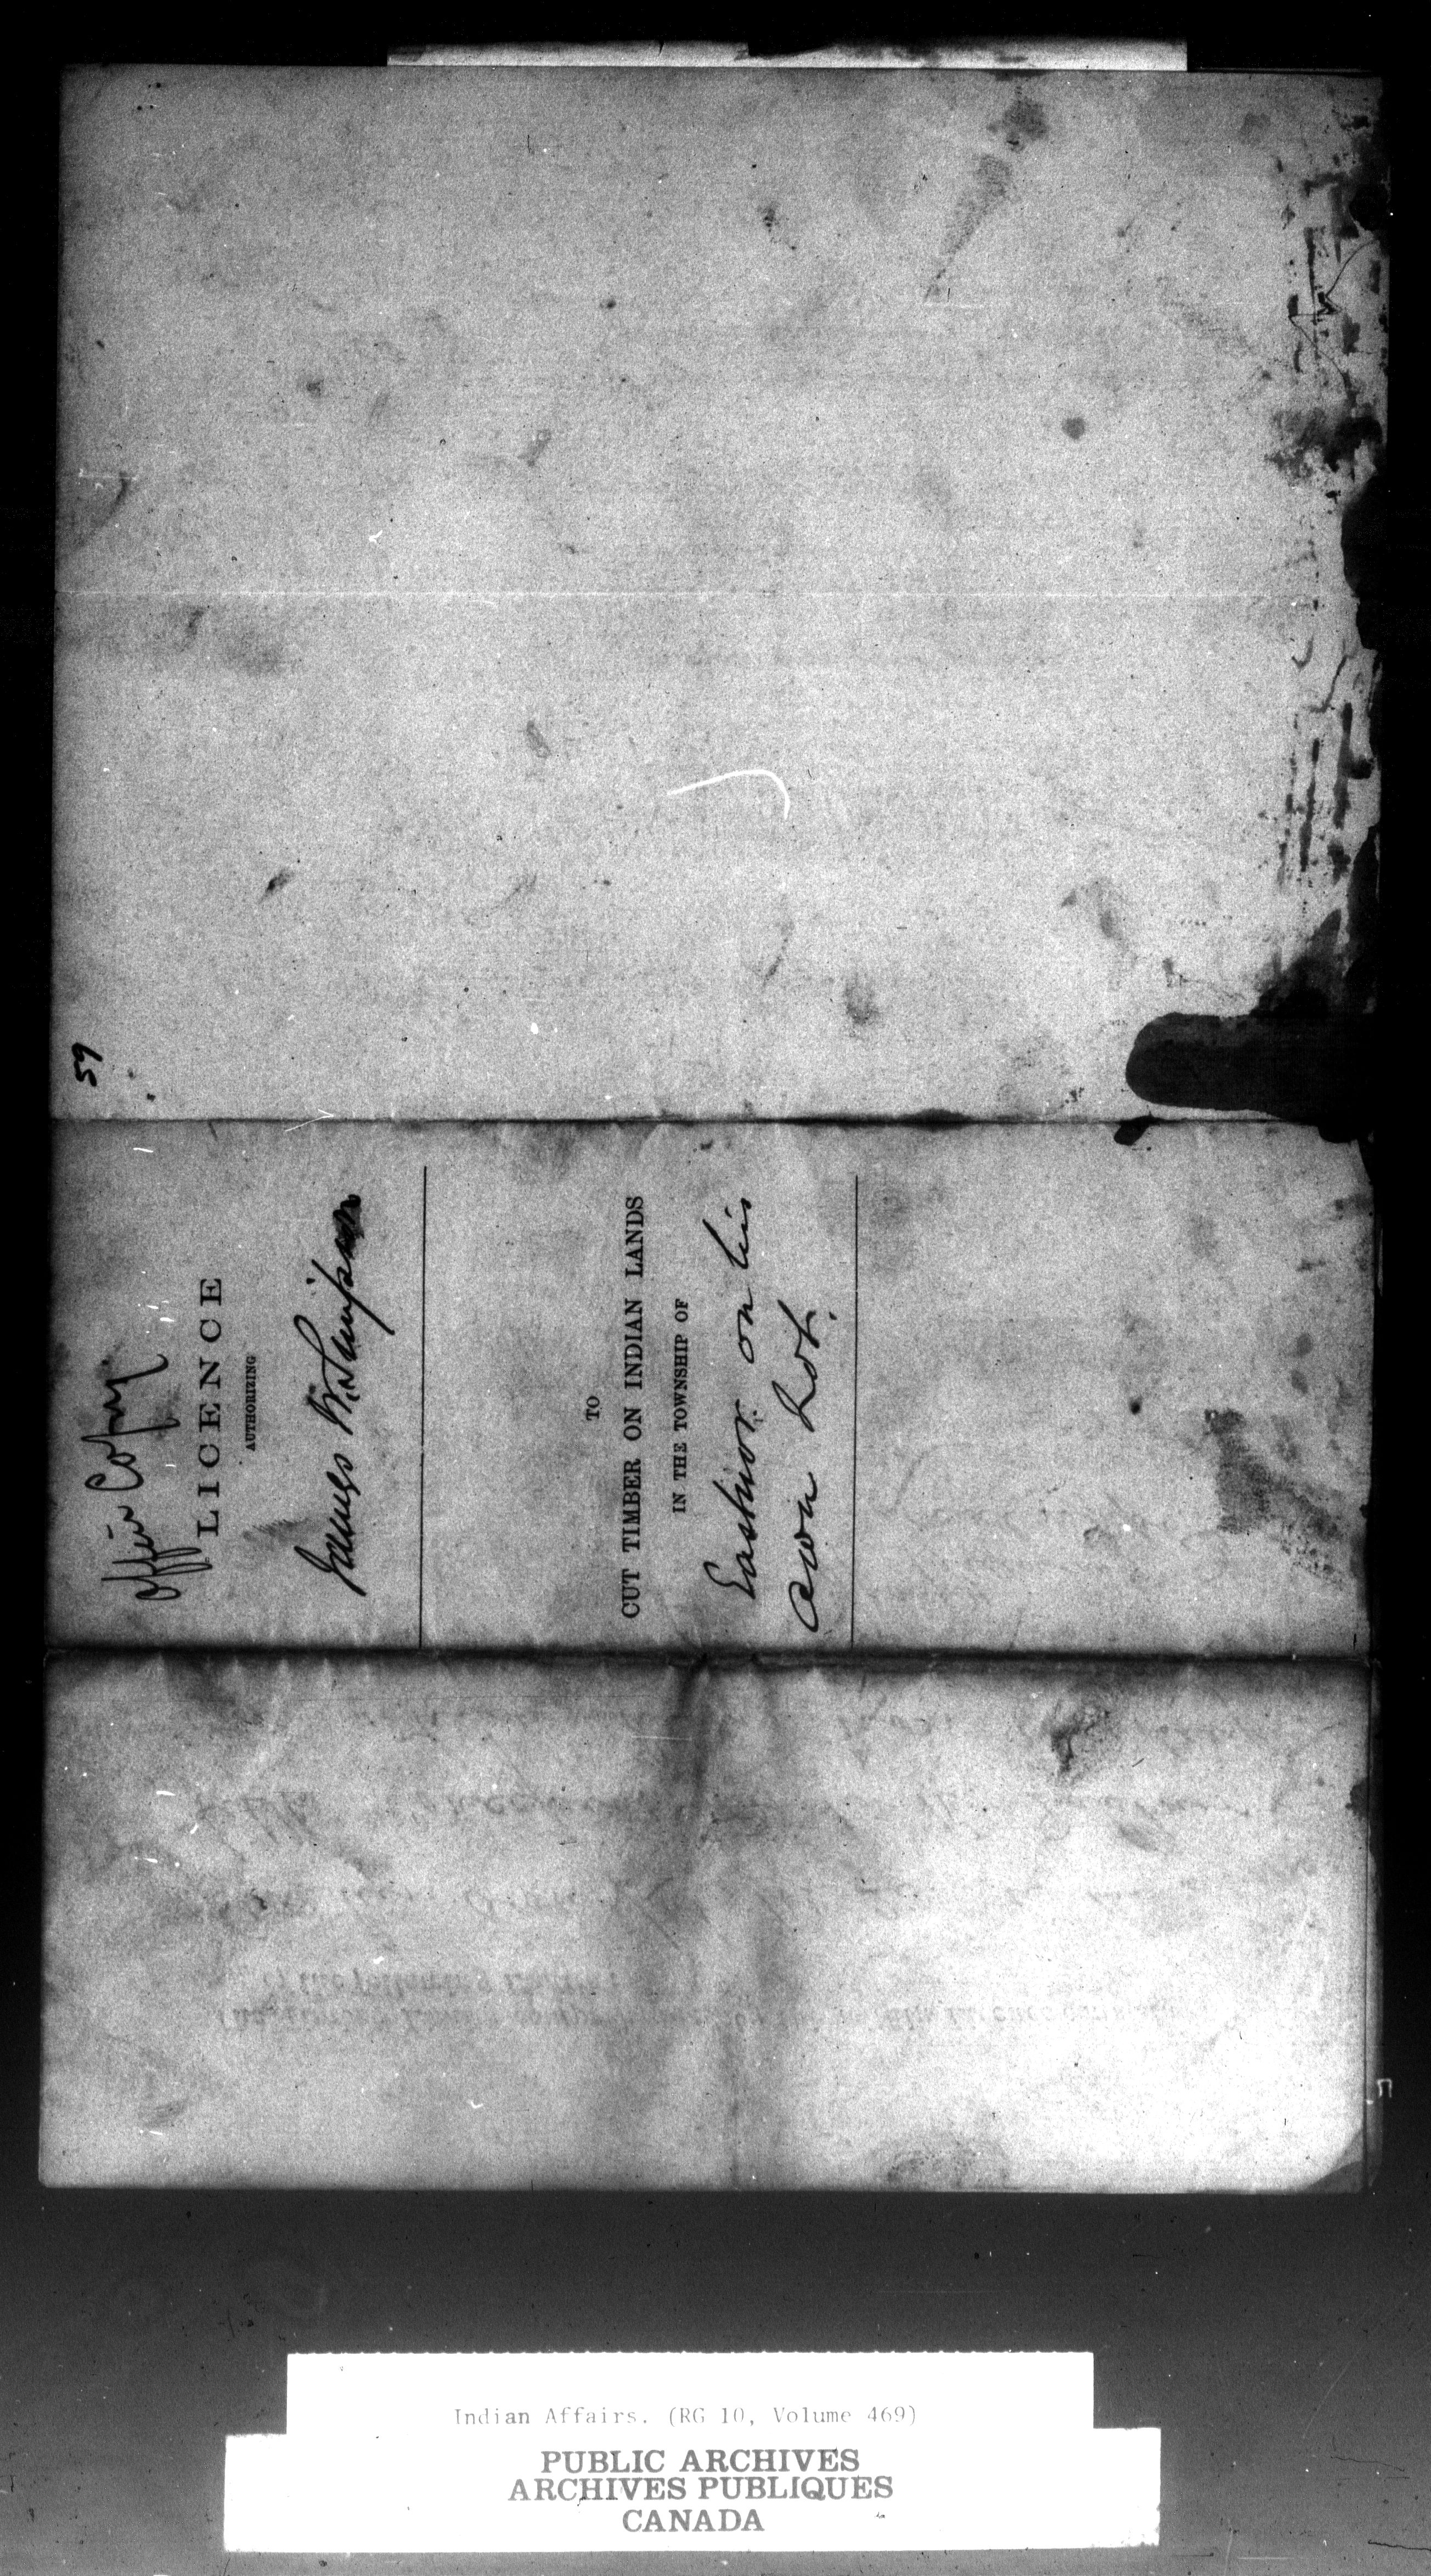 59
Office Copy
LICENCE
AUTHORIZING
James W. Lampson
TO
CUT TIMBER ON INDIAN LANDS
IN THE TOWNSHIP OF
Eastnor. on his
own Lot.
Indian Affairs. (RG 10, Volume 469)
PUBLIC ARCHIVES
ARCHIVES PUBLIQUES
CANADA